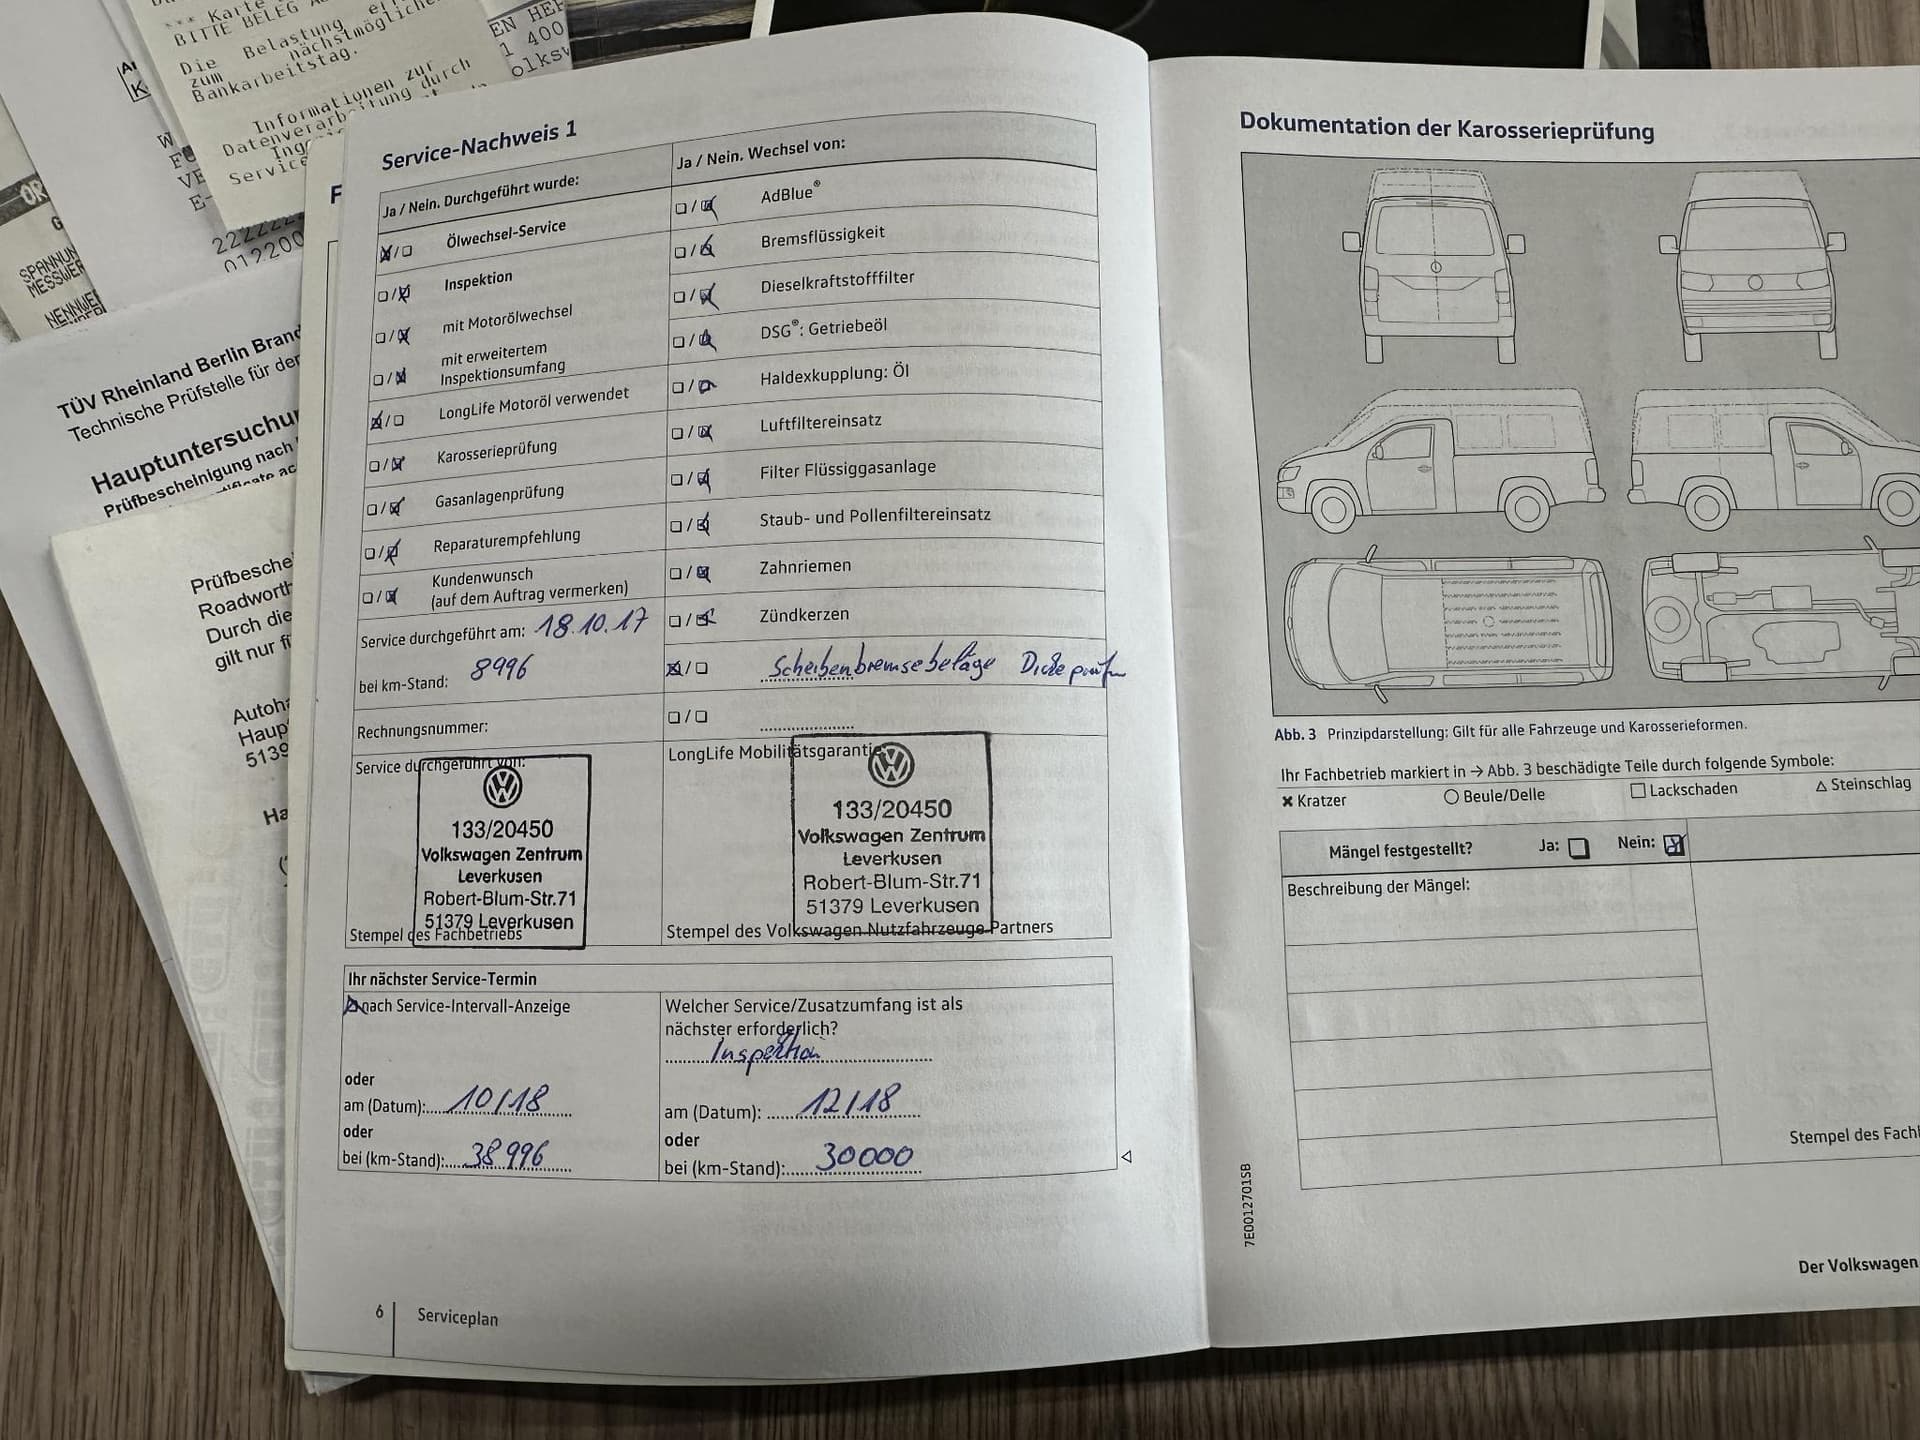 *** Karte
BITTE BELEG
Die Belastung
zum nächstmögliche
Bankarbeitstag.
Informationen zur
Datenverarbeitung durch
Service
EN
1 400
222222
012200
SPANNUN
MESSWER
NENNWE
TÜV Rheinland Berlin Brand
Technische Prüfstelle für der
Hauptuntersuchu
Prüfbescheinigung nach
Prüfbesche
Roadworth
Durch die
gilt nur f
Autoha
Haup
5139
Ha
Service-Nachweis 1
Ja / Nein. Durchgeführt wurde:
Ölwechsel-Service
Inspektion
mit Motorölwechsel
mit erweitertem
Inspektionsumfang
LongLife Motoröl verwendet
Karosserieprüfung
Gasanlagenprüfung
Reparaturempfehlung
Kundenwunsch
(auf dem Auftrag vermerken)
Service durchgeführt am: 18.10.17
bei km-Stand: 8996
Rechnungsnummer:
Ja / Nein. Wechsel von:
AdBlue®
Bremsflüssigkeit
Dieselkraftstofffilter
DSG®: Getriebeöl
Haldexkupplung: Öl
Luftfiltereinsatz
Filter Flüssiggasanlage
Staub- und Pollenfiltereinsatz
Zahnriemen
Zündkerzen
Scheibenbremsebeläge Dicke prüfen
Service durchgeführt von:
133/20450
Volkswagen Zentrum
Leverkusen
Robert-Blum-Str.71
51379 Leverkusen
Stempel des Fachbetriebs
LongLife Mobilitätsgarantie
133/20450
Volkswagen Zentrum
Leverkusen
Robert-Blum-Str.71
51379 Leverkusen
Stempel des Volkswagen Nutzfahrzeuge Partners
Ihr nächster Service-Termin
nach Service-Intervall-Anzeige
oder
am (Datum): 10/18
oder
bei (km-Stand): 38996
Welcher Service/Zusatzumfang ist als
nächster erforderlich?
Inspektion
am (Datum): 12/18
oder
bei (km-Stand): 30000
6 Serviceplan
Dokumentation der Karosserieprüfung
Abb. 3 Prinzipdarstellung: Gilt für alle Fahrzeuge und Karosserieformen.
Ihr Fachbetrieb markiert in → Abb. 3 beschädigte Teile durch folgende Symbole:
✖ Kratzer ○ Beule/Delle □ Lackschaden △ Steinschlag
Mängel festgestellt? Ja: Nein:
Beschreibung der Mängel:
Stempel des Fachb
7E0012701SB
Der Volkswagen